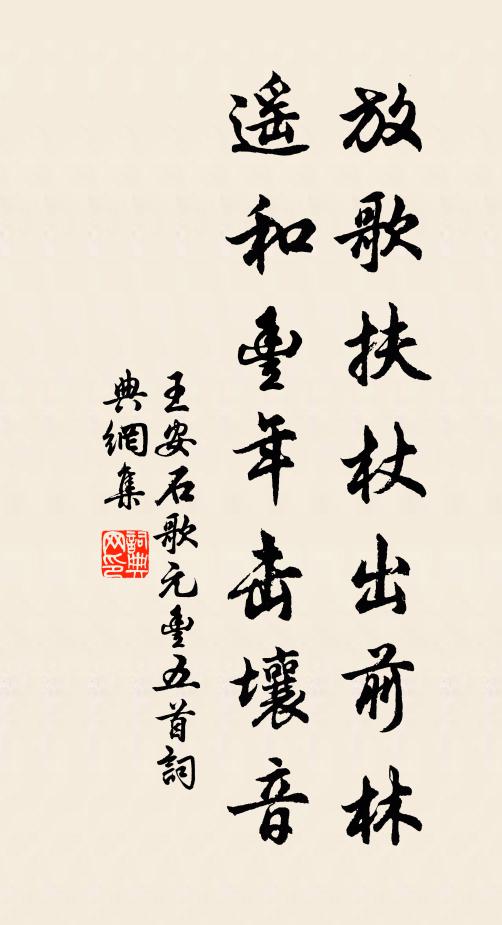 放歌扶杖出前林
遥和豊年击壤音
王安石歌元豊五首詞
典網集
詞典
网印